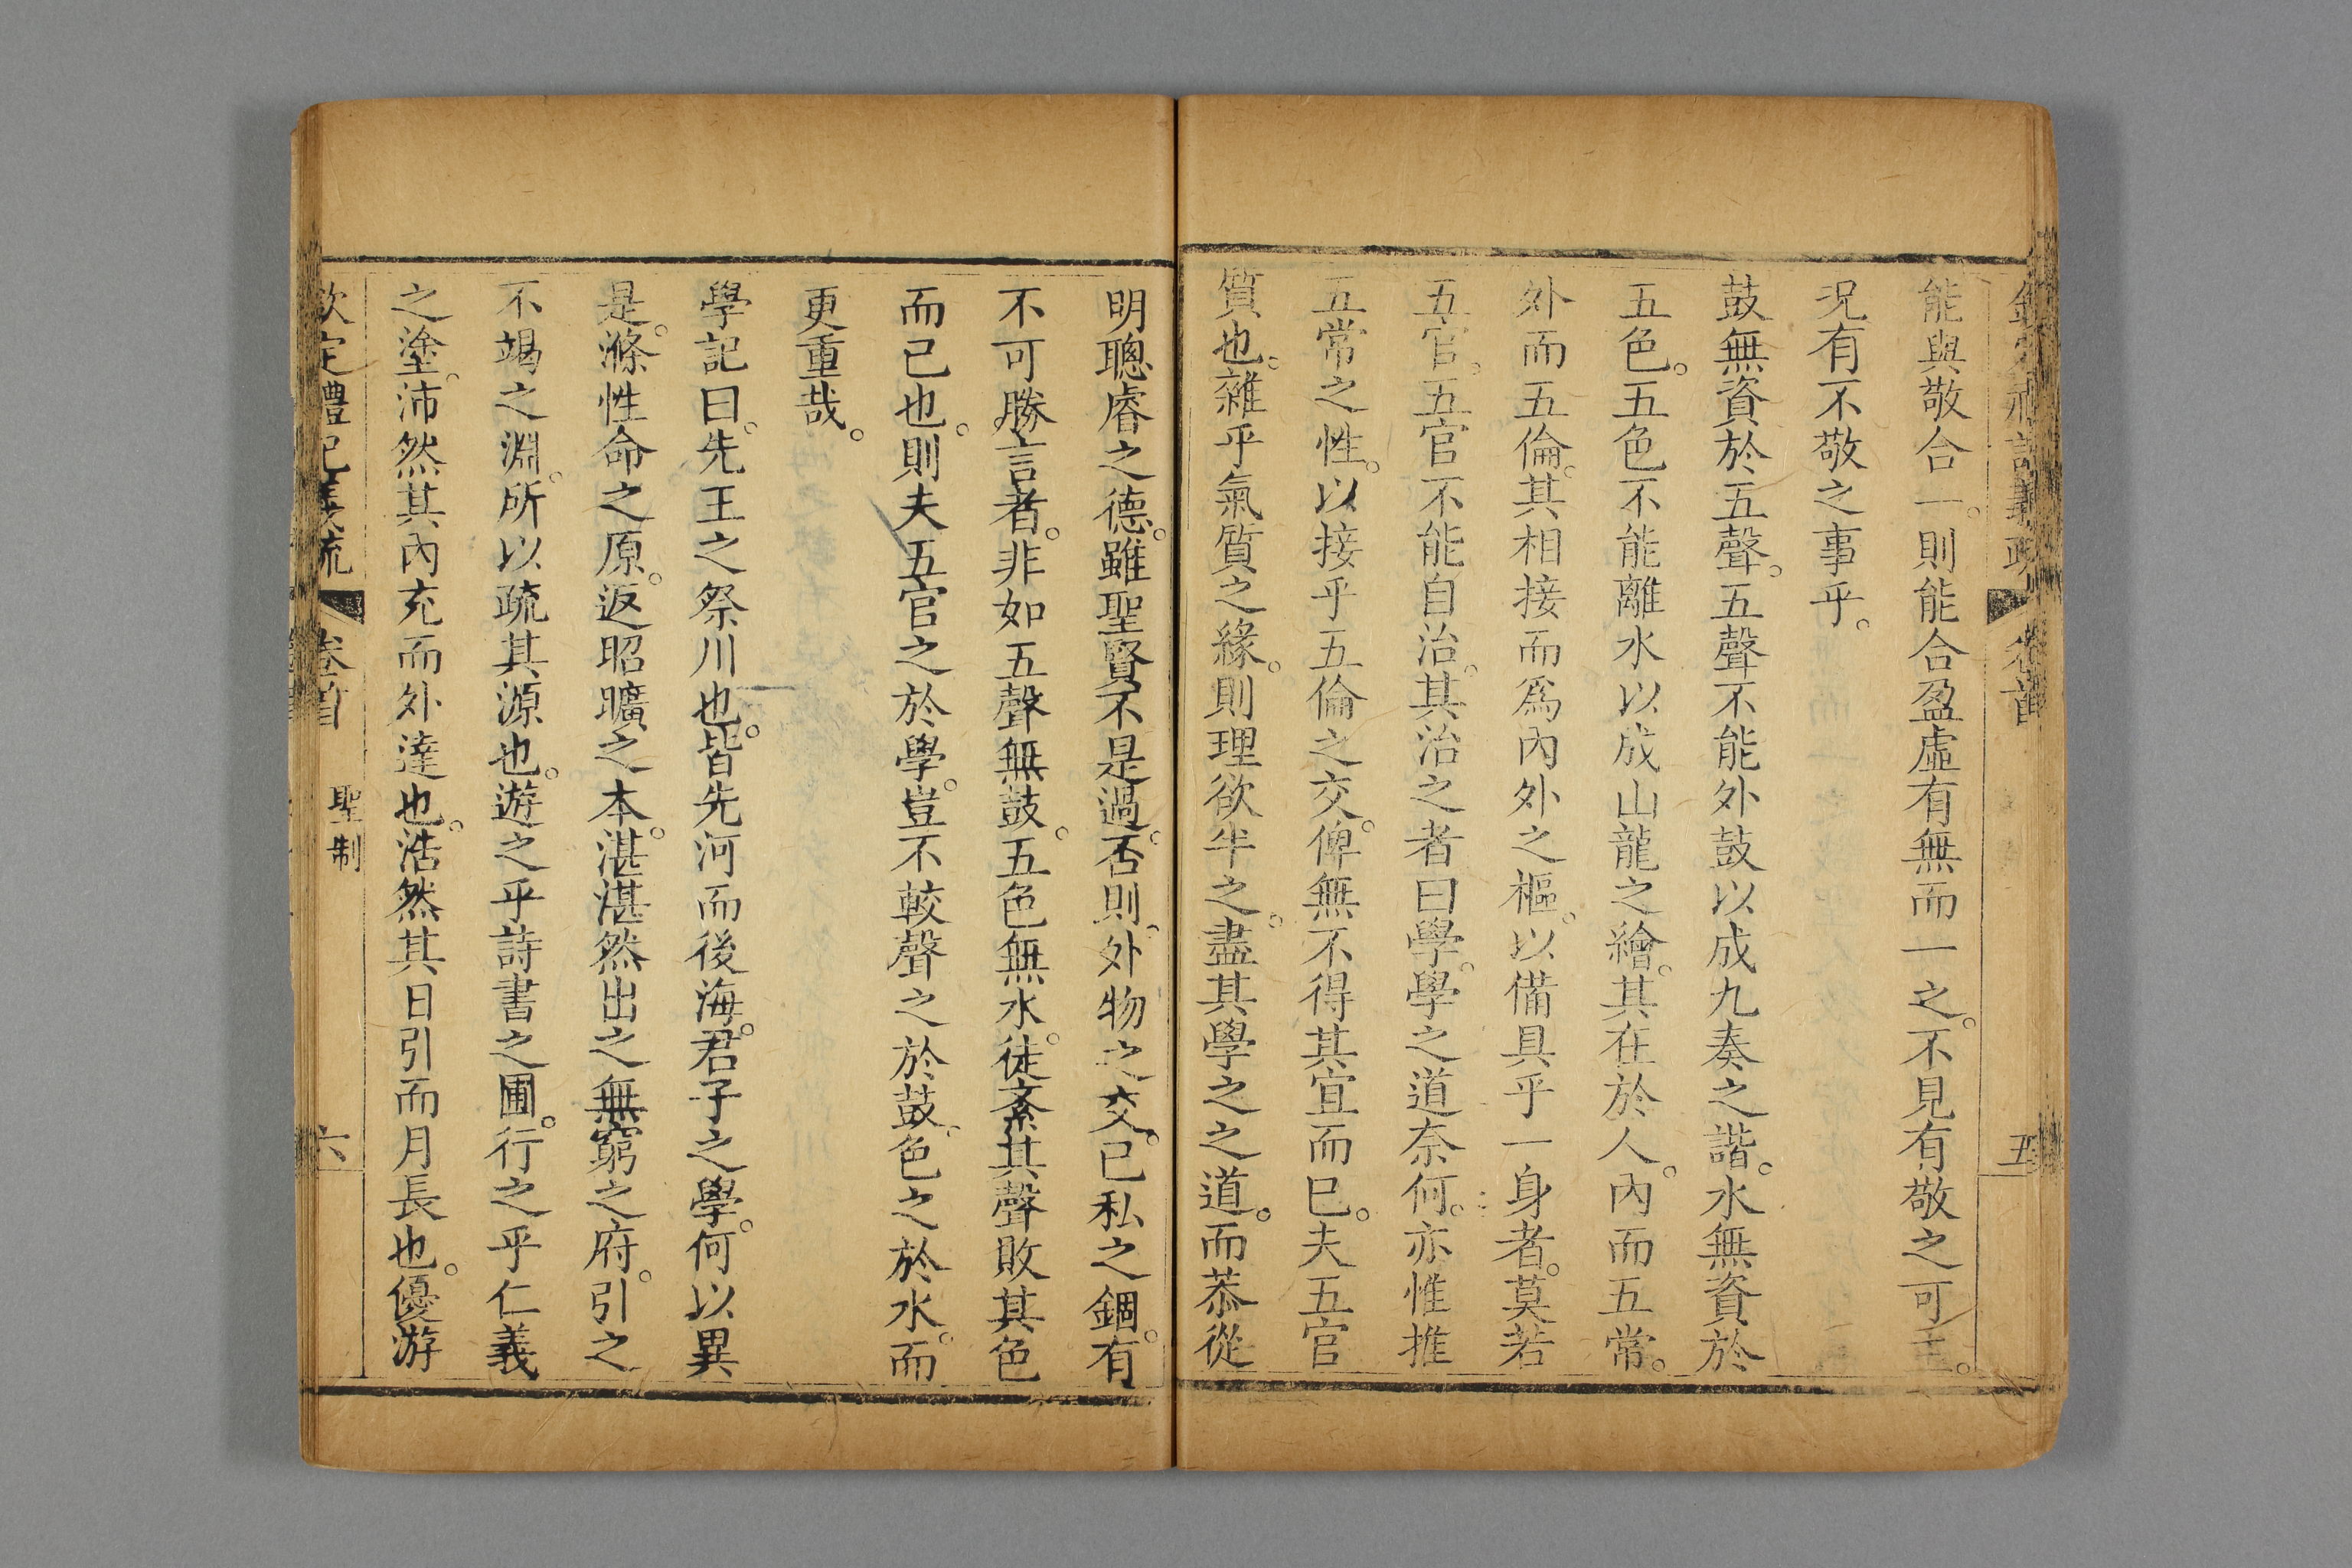 能與敬合一。則能合盈虛有無而一之。不見有敬之可主。
況有不敬之事乎。
鼓無資於五聲。五聲不能外鼓以成九奏之諧。水無資於
五色。五色不能離水以成山龍之繪。其在於人。內而五常。
外而五倫。其相接而爲內外之樞。以備具乎一身者。莫若
五官。五官不能自治。其治之者曰學。學之道奈何。亦惟推
五常之性。以接乎五倫之交。俾無不得其宜而已。夫五官
質也。雜乎氣質之緣。則理欲半之。盡其學之之道。而恭從
明聰睿之德。雖聖賢不是過。否則、外物之交。已私之錮。有
不可勝言者。非如五聲無鼓。五色無水。徒紊其聲敗其色
而已也。則夫五官之於學。豈不較聲之於鼓、色之於水。而
更重哉。
學記曰。先王之祭川也。皆先河而後海。君子之學。何以異
是。滌性命之原。返昭曠之本。湛湛然出之無窮之府。引之
不竭之淵。所以疏其源也。遊之乎詩書之圃。行之乎仁義
之塗。沛然其內充而外達也。浩然其日引而月長也。優游
欽定禮記義疏 卷首 聖制 六